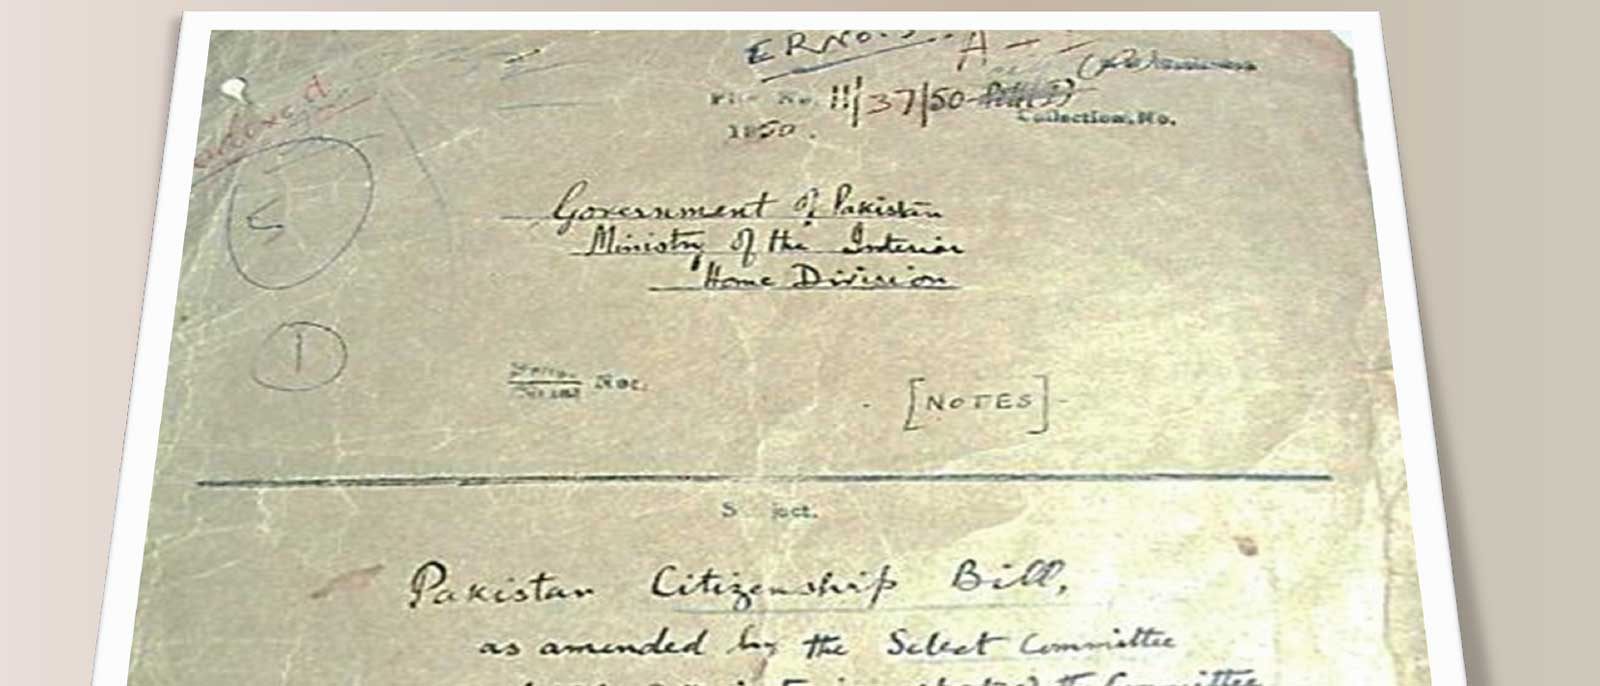 File No. 11/37/50-
1950.
Collection, No.
Government of Pakistan
Ministry of the Interior
Home Division
5
1
Nos.
[NOTES]
S ject.
Pakistan Citizenship Bill,
as amended by the Select Committee
the Committee